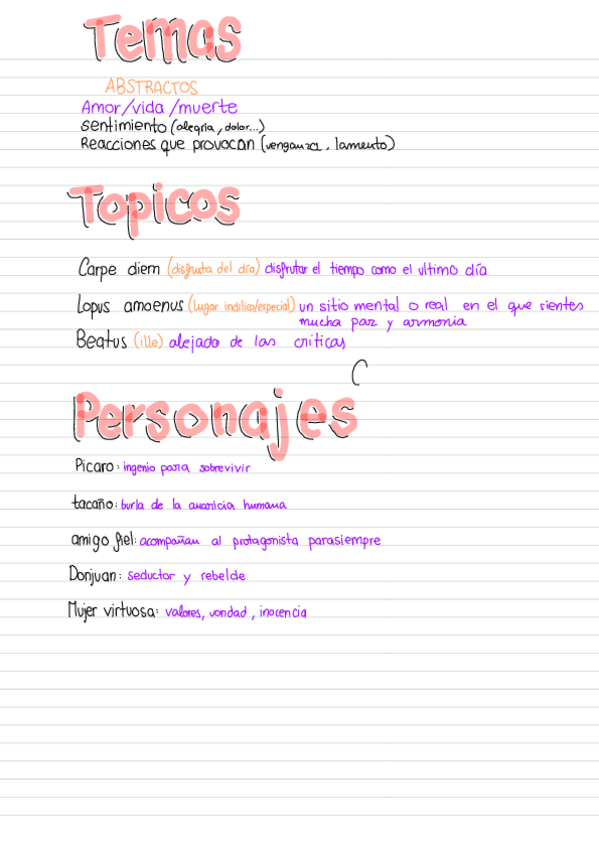 Temas
ABSTRACTOS
Amor/vida/muerte
Sentimiento (alegría, dolor...)
Reacciones que provocan (venganza, lamento)
Topicos
Carpe diem (disfruta del día) disfrutar el tiempo como el ultimo día
Lopus amoenus (lugar indilico/especial) un sitio mental o real en el que sientes
mucha paz y armonia
Beatus (ille) alejado de las criticas
Personajes
Picaro: ingenio para sobrevivir
tacaño: burla de la avaricia humana
amigo fiel: acompañan al protagonista parasiempre
Donjuan: seductor y rebelde
Mujer virtuosa: valores, vondad, inocencia